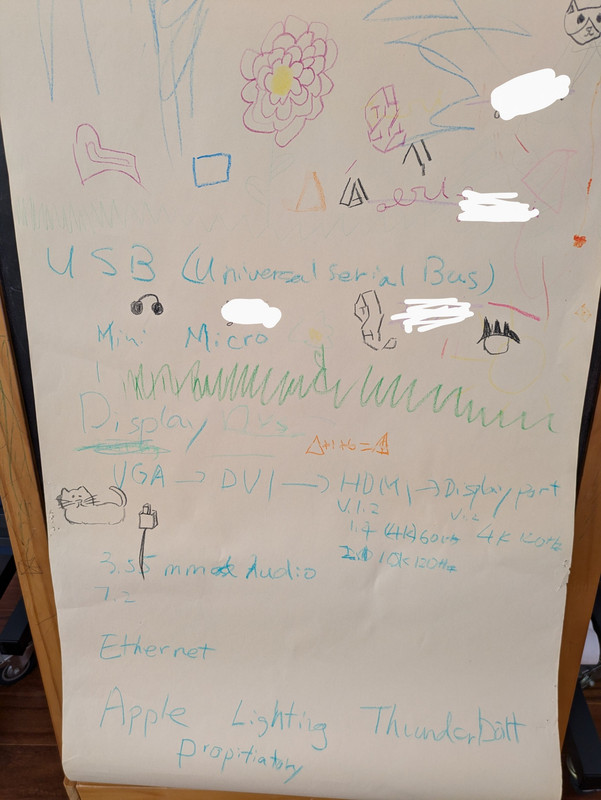 USB (Universal Serial Bus)
Mini Micro
Display
Δ+1+6=
VGA → DVI → HDMI → Displayport
V.1.2 V.1.2
1.4 (4K) 60Hz 4K 120Hz
10K 120Hz
3.55 mm Audio
7.2
Ethernet
Apple Lighting ThunderBolt
Propitiatory